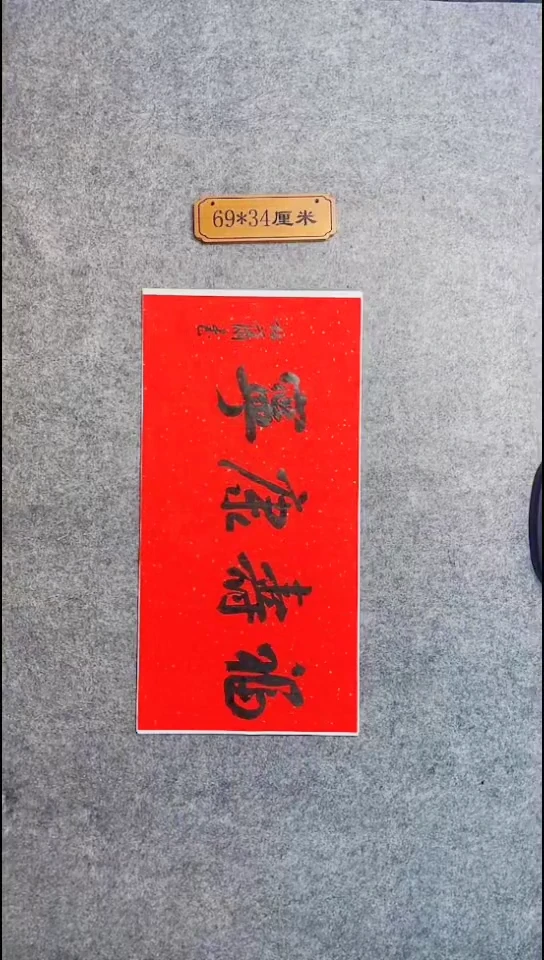 69*34厘米
福寿康寧